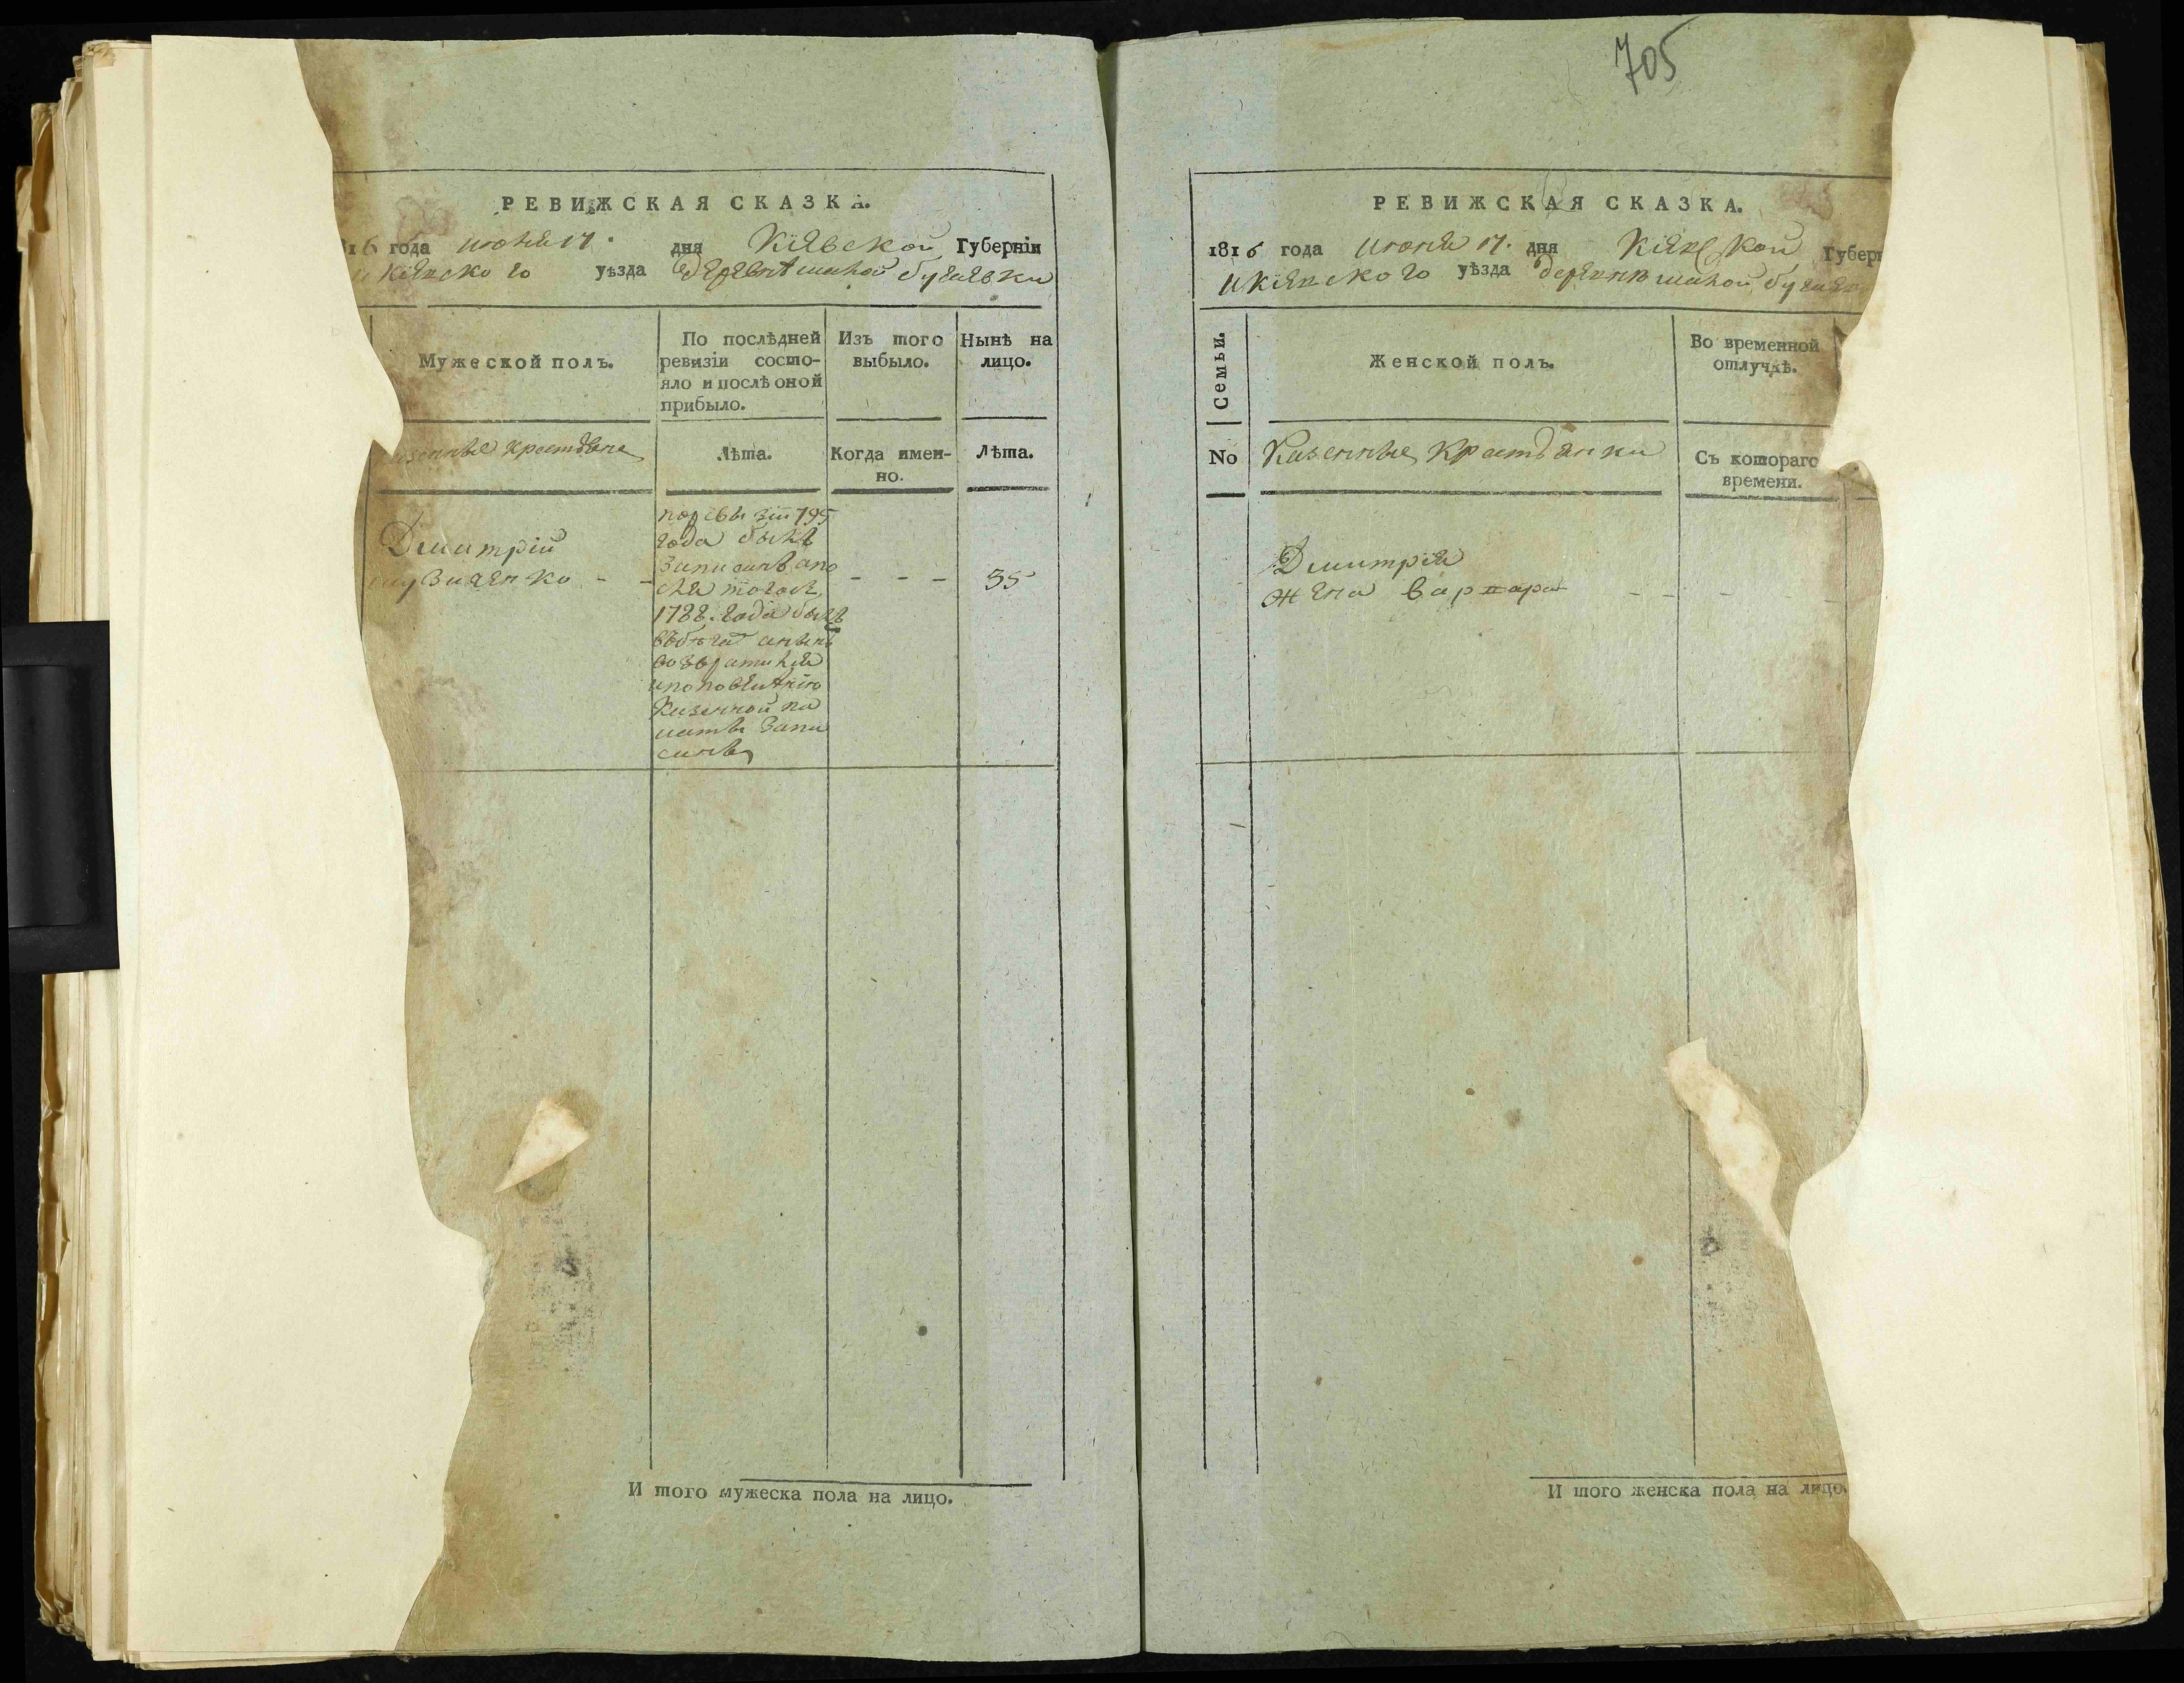 705
РЕВИЖСКАЯ СКАЗКА.
16 года июня 17. дня Кіевской Губерніи
уѣзда деревнѣ малой бугаевки
Мужеской полъ.
По послѣдней ревизіи состо-
яло и послѣ оной
прибыло.
Изъ того
выбыло.
Нынѣ на
лицо.
крестьяне
Лѣта.
Когда имен-
но.
Лѣта.
Дмитрій
- -
по ревизіи 795
года былъ
записанъ апо
сля тогожъ
1788. года былъ
вбѣгах анынѣ
возвратился
ипоповелѣнію
Казенной па
латы запи
санъ
- - -
35
И того мужеска пола на лицо.
РЕВИЖСКАЯ СКАЗКА.
1816 года июня 17. дня Кіевской Губер
икіевского уѣзда деревнѣ малой бугаев
Семьи.
Женской полъ.
Во временной
отлучкѣ.
No
Казенные крестьянки
Съ котораго
времени.
Дмитрія
жена варвара - - - - -
И того женска пола на лицо.